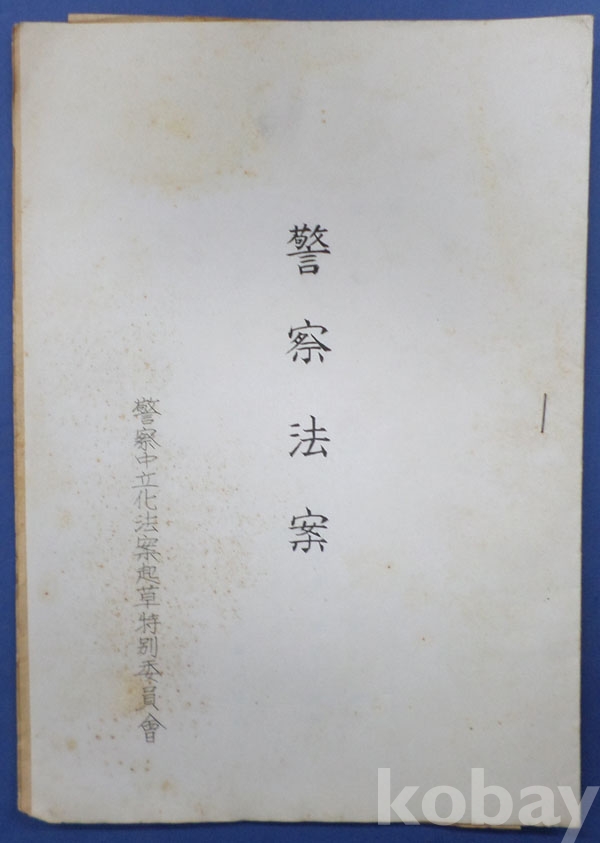 警察法案
警察中立化法案起草特別委員會
kobay